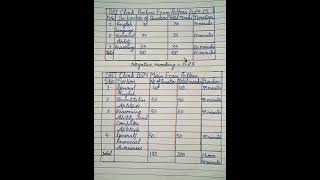 SBI Clerk Prelims Exam Pattern 2024-25
S.No. Section No. of Question Total Marks Duration
1 English 30 30 20 minutes
2 Numerical Ability 35 35 20 minutes
3 Reasoning 35 35 20 minutes
Total 100 100 60 minutes
Negative marking = 0.25
SBI Clerk 2024 Main Exam Pattern
S.No. Section No of Question Total marks Duration
1 General English 40 40 35 minutes
2 Quantitative Aptitude 50 50 45 minutes
3 Reasoning Ability and Computer Aptitude 50 60 45 minutes
4 General/ Financial Awareness 50 50 35 minutes
Total 190 200